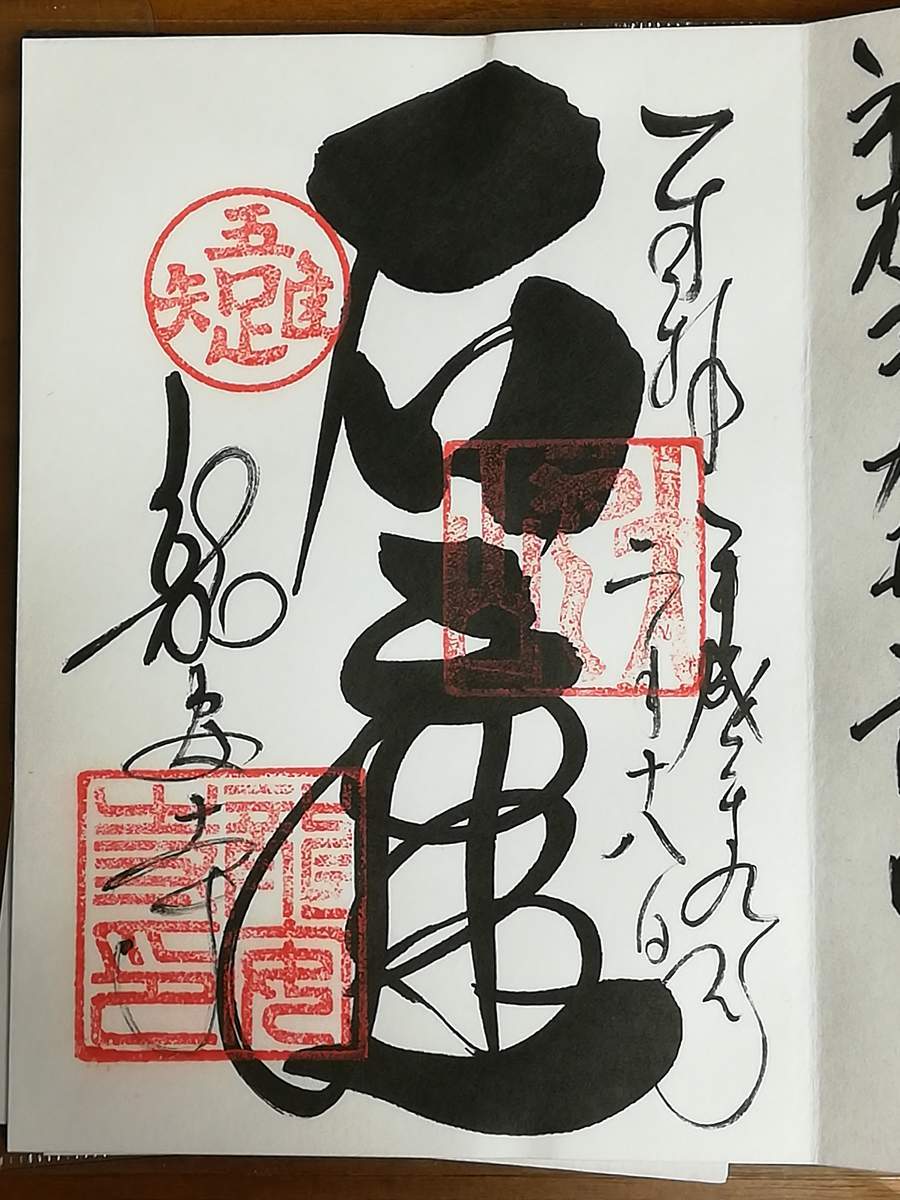 奉拝
平成二十九年
二月十八日
石庭
吾唯足知
龍安寺
龍安寺印